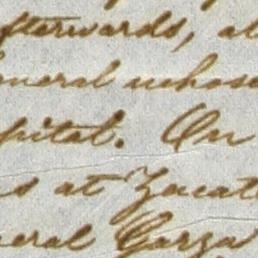 fterwards, al
eneral whose
spital. On
s at Zacate
neral Garza